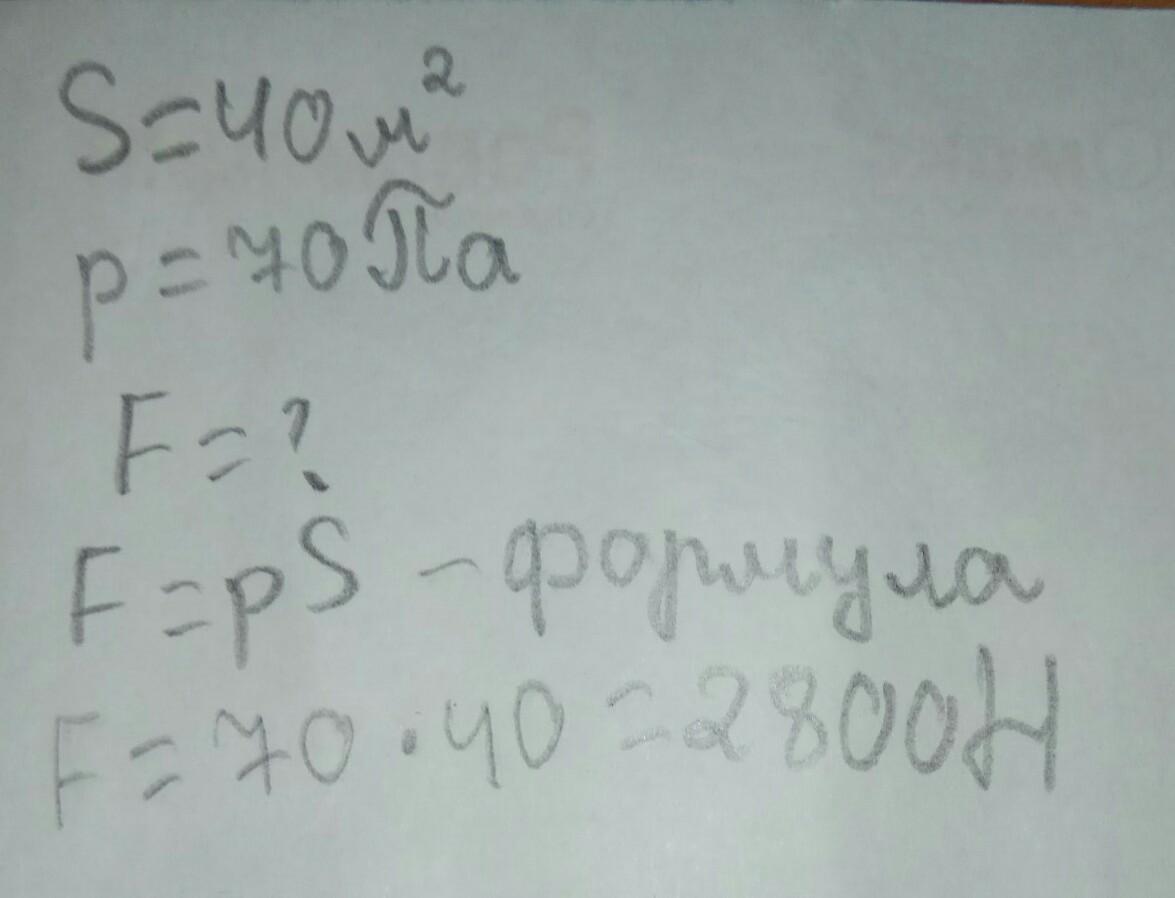 S=40м²
p=70Па
F=?
F=pS - формула
F=70·40=2800Н